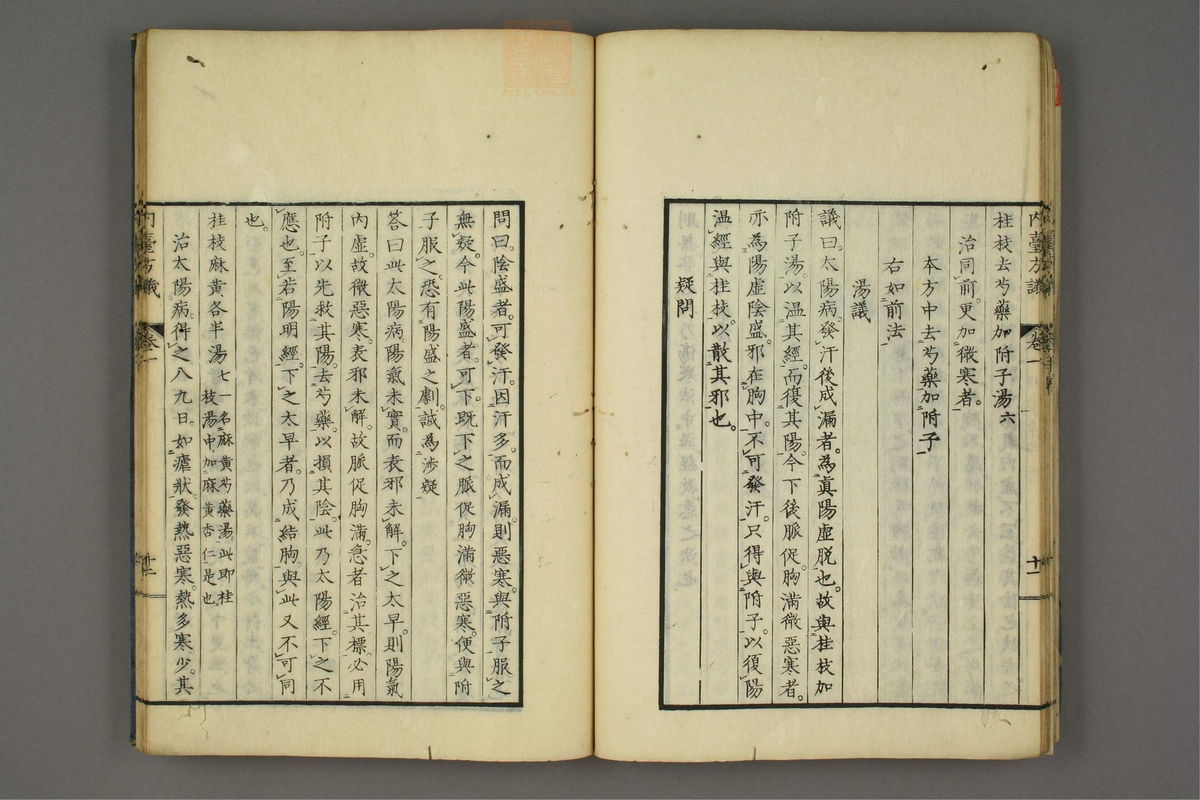 桂枝去芍藥加附子湯六
治同前。更加微寒者。
本方中去芍藥加附子
右如前法
湯議
議曰。太陽病。發汗後成漏者。為真陽虛脫也。故與桂枝加
附子湯。以温其經。而復其陽。今下後脈促。胸滿微惡寒者。
亦為陽虛陰盛。邪在胸中。不可發汗。只得與附子。以復陽
温經。與桂枝。以散其邪也。
疑問
内臺方議
卷一
十一
問曰。陰盛者。可發汗。因汗多。而成漏。則惡寒。與附子服之
無疑。今此陽盛者。可下。既下之脈促胸滿微惡寒。便與附
子服之。恐有陽盛之劇。誠為渉疑
答曰此太陽病。陽氣未實。而表邪未解。下之太早。則陽氣
内虛。故微惡寒。表邪未解。故脈促胸滿。急者治其標。必用
附子。以先救其陽。去芍藥。以損其陰。此乃太陽經。下之不
應也。至若陽明經。下之太早者。乃成結胸。與此又不可同
也。
桂枝麻黃各半湯七一名麻黃芍藥湯。此即桂
枝湯中加麻黃杏仁是也。
治太陽病。得之八九日。如瘧狀。發熱惡寒。熱多寒少。其
内臺方議
卷一